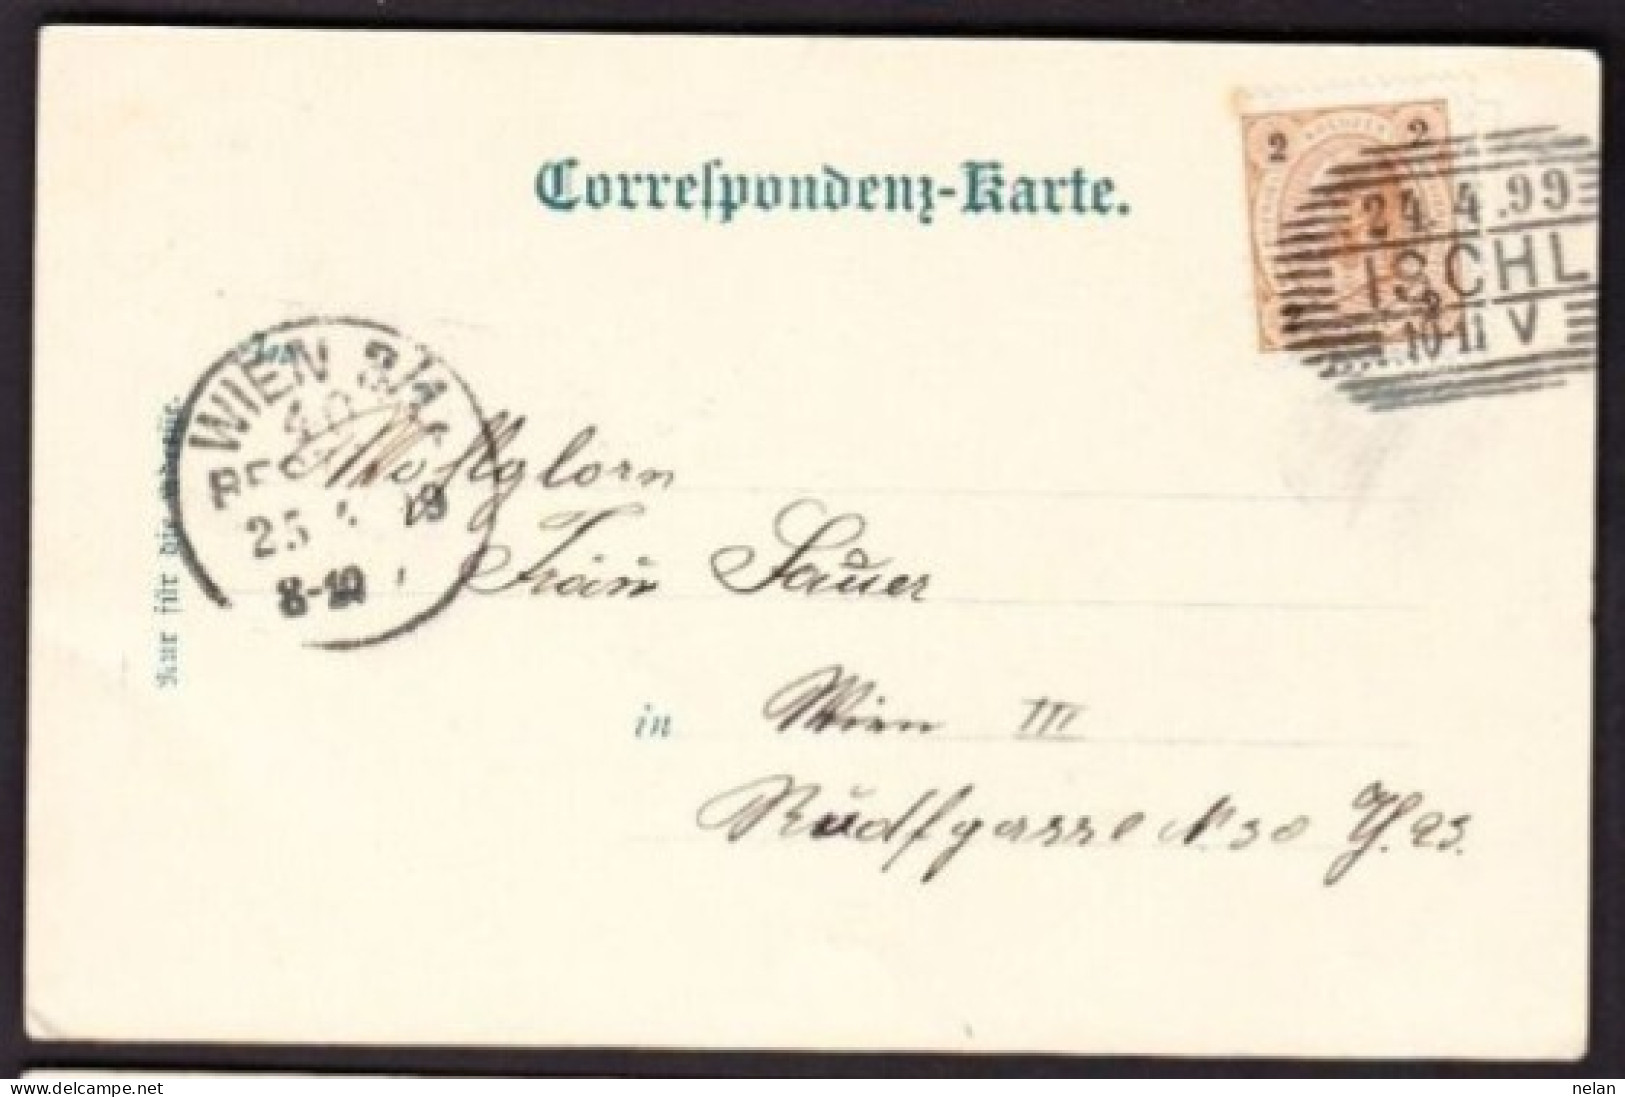 Correspondenz-Karte.
2 2
24.4.99
ISCHL
10-11 V
An
WIEN 3/1
40
25 8-10
Nur für die Adresse.
Wohlgborn
Fräun Sauer
in Wien III
Rudfgasse N. 30 Th. 23.
www.delcampe.net
nelan